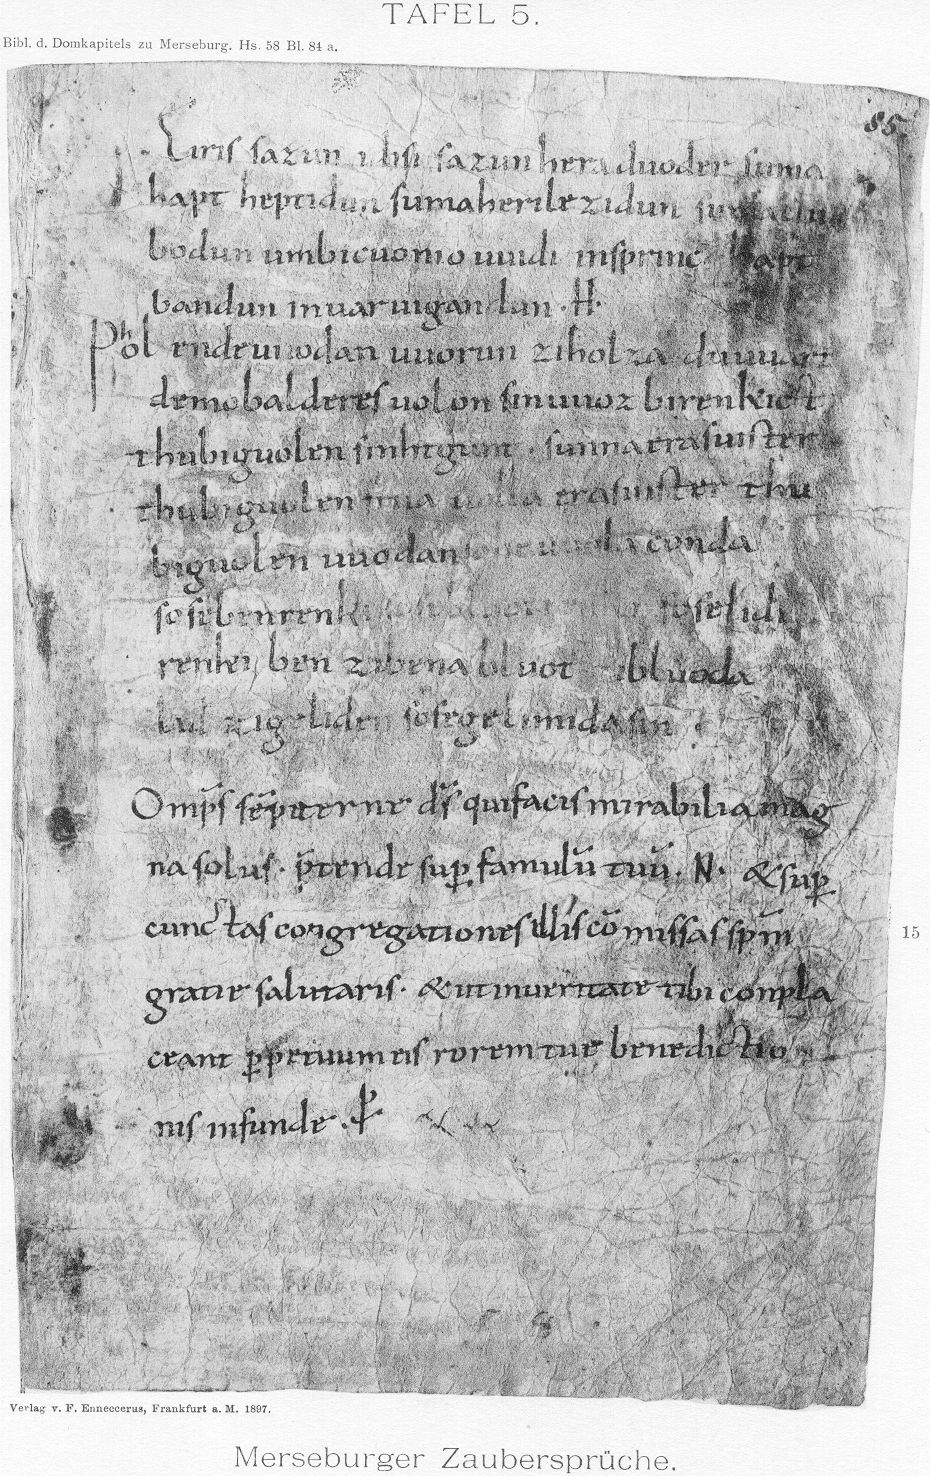 TAFEL 5.
Bibl. d. Domkapitels zu Merseburg. Hs. 58 Bl. 84 a.
85.
Eiris sazun idisi sazun hera duoder suma
hapt heptidun suma heri lezidun suma clu
bodun umbi cuonio uuidi insprinc hapt
bandun inuar uigandun · H ·
Phol ende uuodan uuorun zi holza du uuart
demo balderes uolon sin uuoz birenkict
thu biguolen sinhtgunt · sunna era suister
thu biguolen friia uolla era suister thu
biguolen uuodan so he uuola conda
sose benrenki sose bluotrenki sose lidi
renki ben zi bena bluot zi bluoda
lid zi geliden sose gelimida sin
Omp̄s sēpiterne d̄s qui facis mirabilia mag
na solus · p̄tende sup famulū tuū · N · & sup
cunctas congregationes illis cō missas sp̄m
gratie salutaris · & ut in ueritate tibi conpla
ceant ꝑpetuum eis rorem tue benedictio
nis infunde ·
15
Verlag v. F. Enneccerus, Frankfurt a. M. 1897.
Merseburger Zaubersprüche.